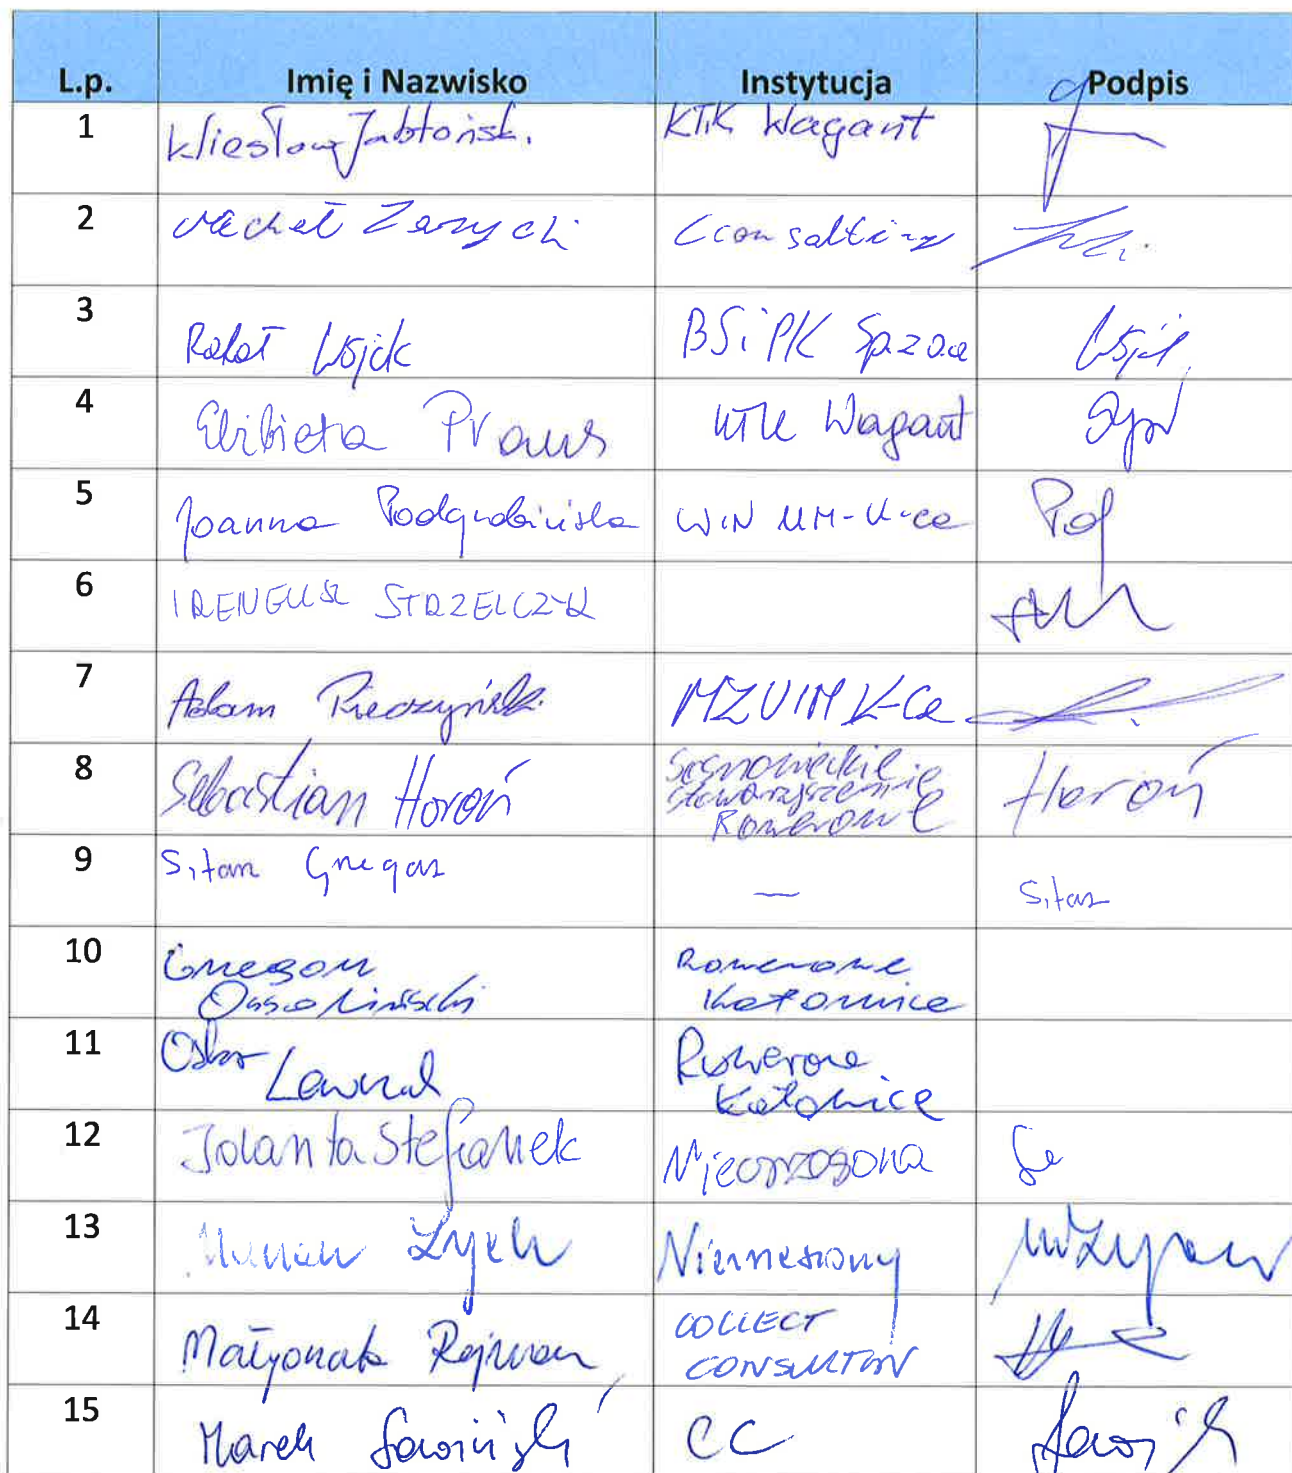 L.p. Imię i Nazwisko Instytucja Podpis
1 Wiesław Jabłońsk. KTK Wagant
2 Michał Zarych Cconsalting
3 Rafał Wójcik BSiPK Sp. z o.o
4 Elżbieta Praus KTK Wagant
5 Joanna WIN UM-K-ce
6 IRENEUSZ STRZELCZYK
7 Adam Pieczyńsk. MZUIM K-Ce
8 Sebastian Horoń Sosnowieckie Stowarzyszenie Rowerowe Horoń
9 Sitarz Grzegorz — Sitarz
10 Grzegorz Ossoliński Rowerowe Katowice
11 Oskar Rowerowe Katowice
12 Jolanta Stefanek Niezrzeszona
13 Zych Niezrzeszony
14 Małgorzata Rajman COLLECT CONSULTING
15 Marek Sawiński CC